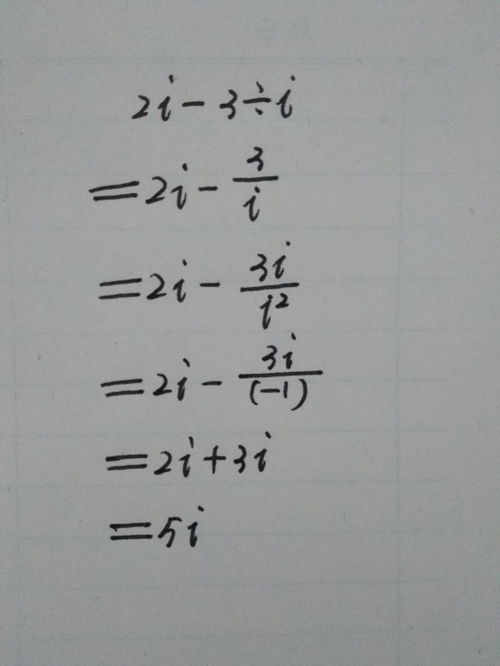 2i - 3 ÷ i
= 2i - \frac{3}{i}
= 2i - \frac{3i}{i^2}
= 2i - \frac{3i}{(-1)}
= 2i + 3i
= 5i